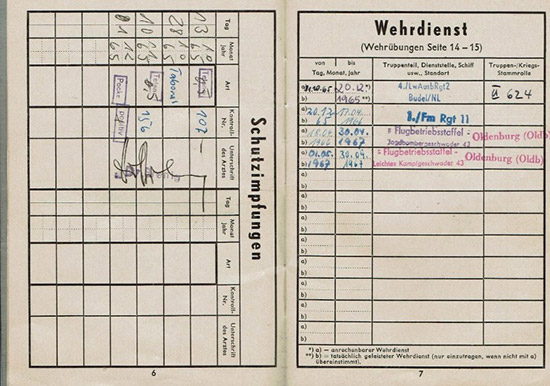 Schutzimpfungen
Tag
Monat Jahr
Art
Kontroll-Nr.
Unterschrift des Arztes
Tag
Monat Jahr
Art
Kontroll-Nr.
Unterschrift des Arztes
13 10 65 107
28 10 65 Taboral
10 65 156
12 65 Pocke positiv
6
Wehrdienst
(Wehrübungen Seite 14 – 15)
von bis
Tag, Monat, Jahr
Truppenteil, Dienststelle, Schiff usw., Standort
Truppen-/Kriegs-Stammrolle
a) 20.12. *) 4./LwAusbRgt2 II 624
b) 1965 **) Budel/NL
a) 20.12. 17.04. 8./Fm Rgt 11
b) 65 1966
a) 18.04. 30.04. Flugbetriebsstaffel - Oldenburg (Oldb)
b) 1966 1967 Jagdbombergeschwader 43
a) 01.05. 30.09. Flugbetriebsstaffel - Oldenburg (Oldb)
b) 1967 1967 Leichtes Kampfgeschwader 43
a)
b)
a)
b)
a)
b)
a)
b)
a)
b)
a)
b)
*) a) = anrechenbarer Wehrdienst
**) b) = tatsächlich geleisteter Wehrdienst (nur einzutragen, wenn nicht mit a) übereinstimmt).
7